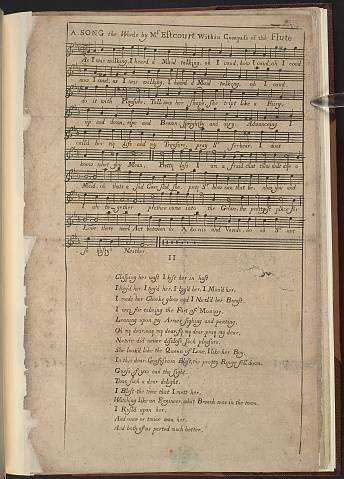 A SONG the Words by Mr Estcourt Within Compass of the Flute
As I was walking, I heard a Maid talking, oh I coud, how I coud, oh I coud
now I coud, as I was walking, I heard a Maid talking, oh I coud
do it with Pleasure, Tall was her shape, she tript like a Fairy,
up and down, ripe and Bosom sprightly and airy Advancing I
calld her my life and my Treasure, pray Sr forbear, I dont
know what you Mean, Pretty lass I am afraid that thou wilt dye a
Maid, oh thats a sad Case said she, pray Sr how can that be, when you and
I are together please come into the Grove, the prettyest place for
Love, there need Act between be A donis and Venus, do oh Sr not
fy oh Neither
II
Clasping her wast I kist her in hast
I hug'd her, I tug'd her, I lug'd her, I Mous'd her.
I made her Cheeks glow and I Nestl'd her Breast.
I was for takeing the Fort of Monjuy,
Leaning upon my Armes sighing and panting.
Oh my dear, nay my dear, fy my dear pray my dear,
Nature did never disclose such pleasure,
She look'd like the Queen of Love, I like her Boy.
In that dear Confusion Blest, the pretty Rogue fell down.
Guess if you can the sight.
Than such a dear delight.
I Blest the time that I mett her.
Watching like an Engineer, what Breach was in the town.
I Rush'd upon her.
And once or twice won her.
And both of us parted much better.